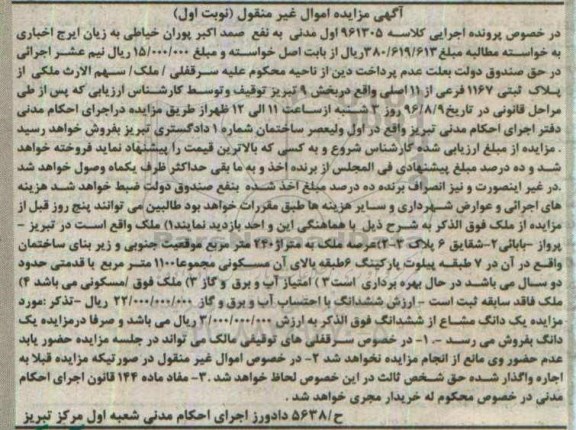 آگهی مزایده اموال غیر منقول (نوبت اول)
در خصوص پرونده اجرایی کلاسه ۹۶۱۳۰۵ اول مدنی به نفع صمد اکبر پوران خیاطی به زیان ایرج اخباری
به خواسته مطالبه مبلغ ۳۸۰/۶۱۹/۶۱۳ریال از بابت اصل خواسته و مبلغ ۱۵/۰۰۰/۰۰۰ ریال نیم عشر اجرائی
در حق صندوق دولت بعلت عدم پرداخت دین از ناحیه محکوم علیه سرقفلی / ملک/ سهم الارث ملکی از
پلاک ثبتی ۱۱۶۷ فرعی از ۱۱ اصلی واقع دربخش ۹ تبریز توقیف و توسط کارشناس ارزیابی که پس از طی
مراحل قانونی در تاریخ ۹۶/۸/۹ روز ۳ شنبه ازساعت ۱۱ الی ۱۲ ظهراز طریق مزایده دراجرای احکام مدنی
دفتر اجرای احکام مدنی تبریز واقع در اول ولیعصر ساختمان شماره ۱ دادگستری تبریز بفروش خواهد رسید
. مزایده از مبلغ ارزیابی شده کارشناس شروع و به کسی که بالاترین قیمت را پیشنهاد نماید فروخته خواهد
شد و ده درصد مبلغ پیشنهادی فی المجلس از برنده اخذ و به ما بقی حداکثر ظرف یکماه وصول خواهد شد
.در غیر اینصورت و نیز انصراف برنده ده درصد مبلغ اخذ شده بنفع صندوق دولت ضبط خواهد شد هزینه
های اجرائی و عوارض شهرداری و سایر هزینه ها طبق مقررات خواهد بود طالبین می توانند پنج روز قبل از
مزایده از ملک فوق الذکر به شرح ذیل با هماهنگی این و احد بازدید نمایند۱) ملک واقع است در تبریز –
پرواز –بابائی ۲–شقایق ۶ پلاک ۳–۲)عرصه ملک به متراژ۲۴۰ متر مربع موقعیت جنوبی و زیر بنای ساختمان
واقع در آن در ۷ طبقه پیلوت پارکینگ ۶طبقه بالای آن مسکونی مجموعا۱۱۰۰ متر مربع با قدمتی حدود
دو سال می باشد در حال بهره برداری است۳ ) امتیاز آب و برق و گاز ۳) ملک فوق /مسکونی می باشد ۴)
ملک فاقد سابقه ثبت است – ارزش ششدانگ با احتساب آب و برق و گاز ۲۲/۰۰۰/۰۰۰/۰۰۰ ریال –تذکر :مورد
مزایده یک دانگ مشاع از ششدانگ فوق الذکر به ارزش ۳/۰۰۰/۰۰۰/۰۰۰ ریال می باشد و صرفا درمزایده یک
دانگ بفروش می رسد –. ۱- در خصوص سرقفلی های توقیفی مالک می تواند در جلسه مزایده حضور یابد
عدم حضور وی مانع از انجام مزایده نخواهد شد ۲- در خصوص اموال غیر منقول در صورتیکه مزایده قبلا به
اجاره واگذار شده حق شخص ثالث در این خصوص لحاظ خواهد شد .۳- مفاد ماده ۱۴۴ قانون اجرای احکام
مدنی در خصوص محکوم له خریدار مجری خواهد شد .
ح/۵۶۳۸ دادورز اجرای احکام مدنی شعبه اول مرکز تبریز